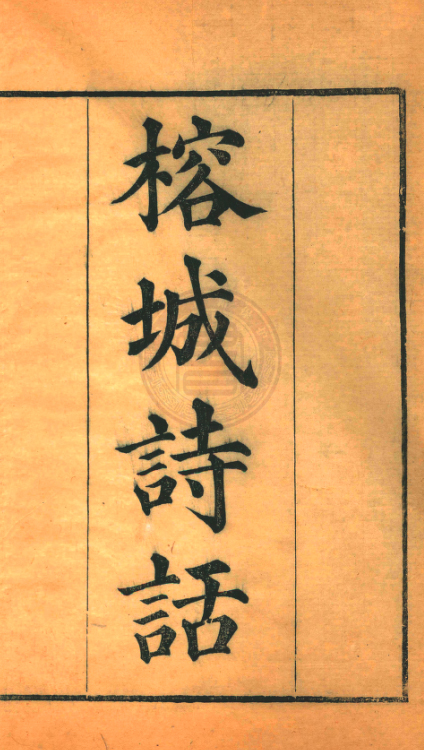 榕城詩話